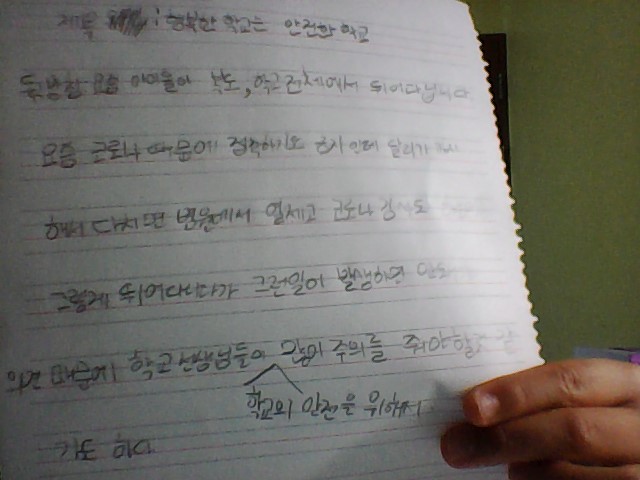 제목 : 행복한 학교는 안전한 학교
요즘 아이들이 복도, 학교 전체에서 뛰어다닙니다
요즘 코로나 때문에 접촉하기도 달리기
해서 다치면 병원에서 열체고 코로나
그렇게 뛰어다니다가 그런일이 발생하면
때문에 학교 선생님들이 많이 주의를 줘야할
학교의 안전을 위해서
기도 하다